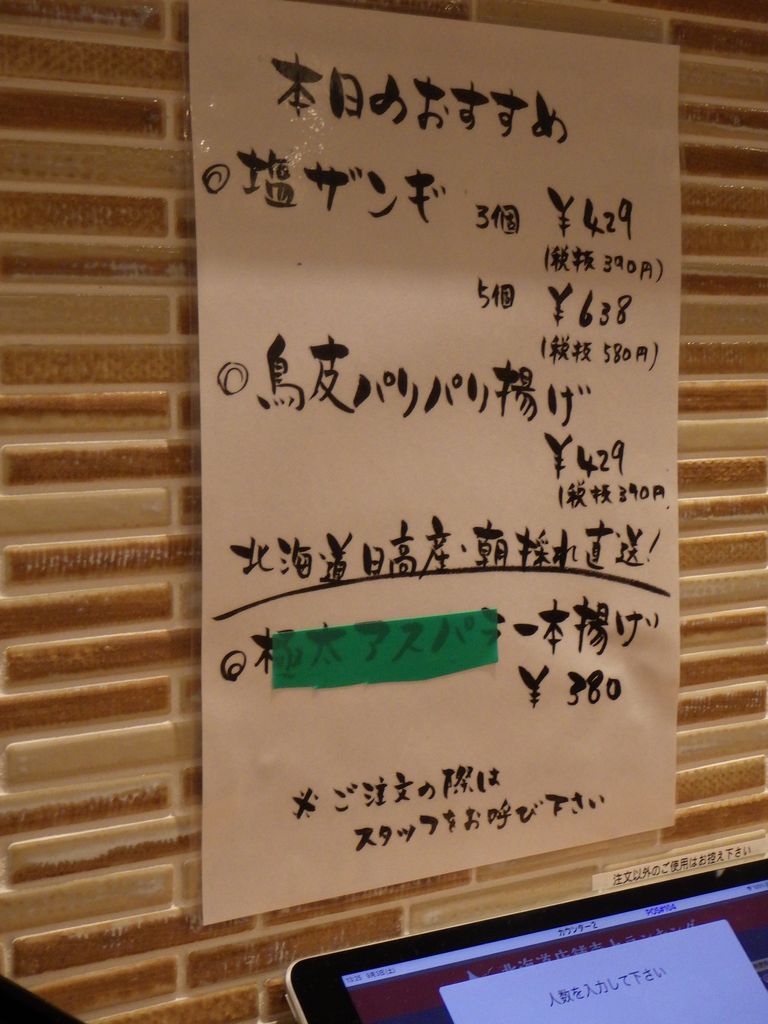 本日のおすすめ
◎塩ザンギ
3個 ¥429
(税抜390円)
5個 ¥638
(税抜580円)
◎鳥皮パリパリ揚げ
¥429
(税抜390円
北海道日高産・朝採れ直送!
◎極太アスパラ一本揚げ
¥380
※ご注文の際は
スタッフをお呼び下さい
注文以外のご使用はお控え下さい
カウンター2
人数を入力して下さい